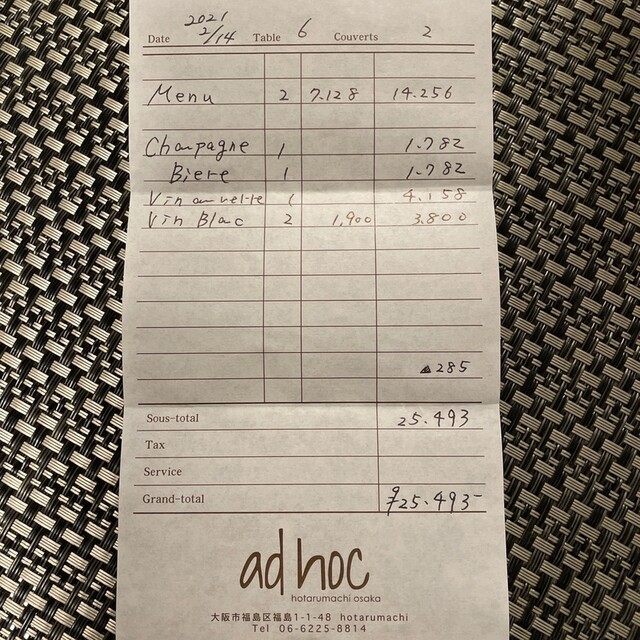 Date 2021 2/14 Table 6 Couverts 2
Menu 2 7.128 14.256
Champagne 1 1.782
Biere 1 1.782
Vin au verre 1 4.158
Vin Blac 2 1,900 3.800
▲285
Sous-total 25.493
Tax
Service
Grand-total ¥25.493-
ad hoc
hotarumachi osaka
大阪市福島区福島1-1-48 hotarumachi
Tel 06-6225-8814